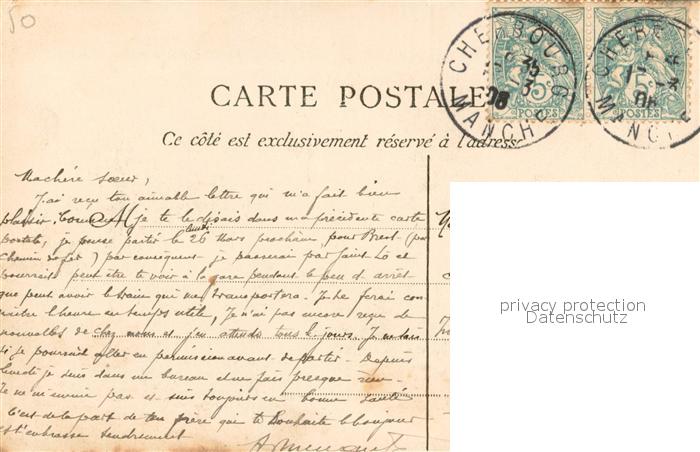 50
CHERBOURG
MANCHE
CHERB
MANCHE
5c
POSTES
POSTES
CARTE POSTALE
Ce côté est exclusivement réservé à l'adresse
Ma chère sœur,
J'ai reçu ton aimable lettre qui m'a fait bien
plaisir. Comme je te le disais dans ma précédente carte
postale, je pense partir le lundi 26 Mars prochain pour Brest (par
chemin de fer) par conséquent je passerai par Saint Lô et
pourrais peut être te voir à la gare pendant le peu d'arrêt
que peut avoir le train qui me transportera. Je te ferai con
naitre l'heure en temps utile, Je n'ai pas encore reçu de
nouvelles de chez nous et j'en attends tous les jours. Je ne sais
si je pourrais aller en permission avant de partir. Depuis
lundi je suis dans un bureau et ne fais presque rien.
Je ne m'ennuie pas et suis toujours en bonne santé
C'est de la part de ton frère qui te souhaite le bonjour
et t'embrasse tendrement
privacy protection
Datenschutz